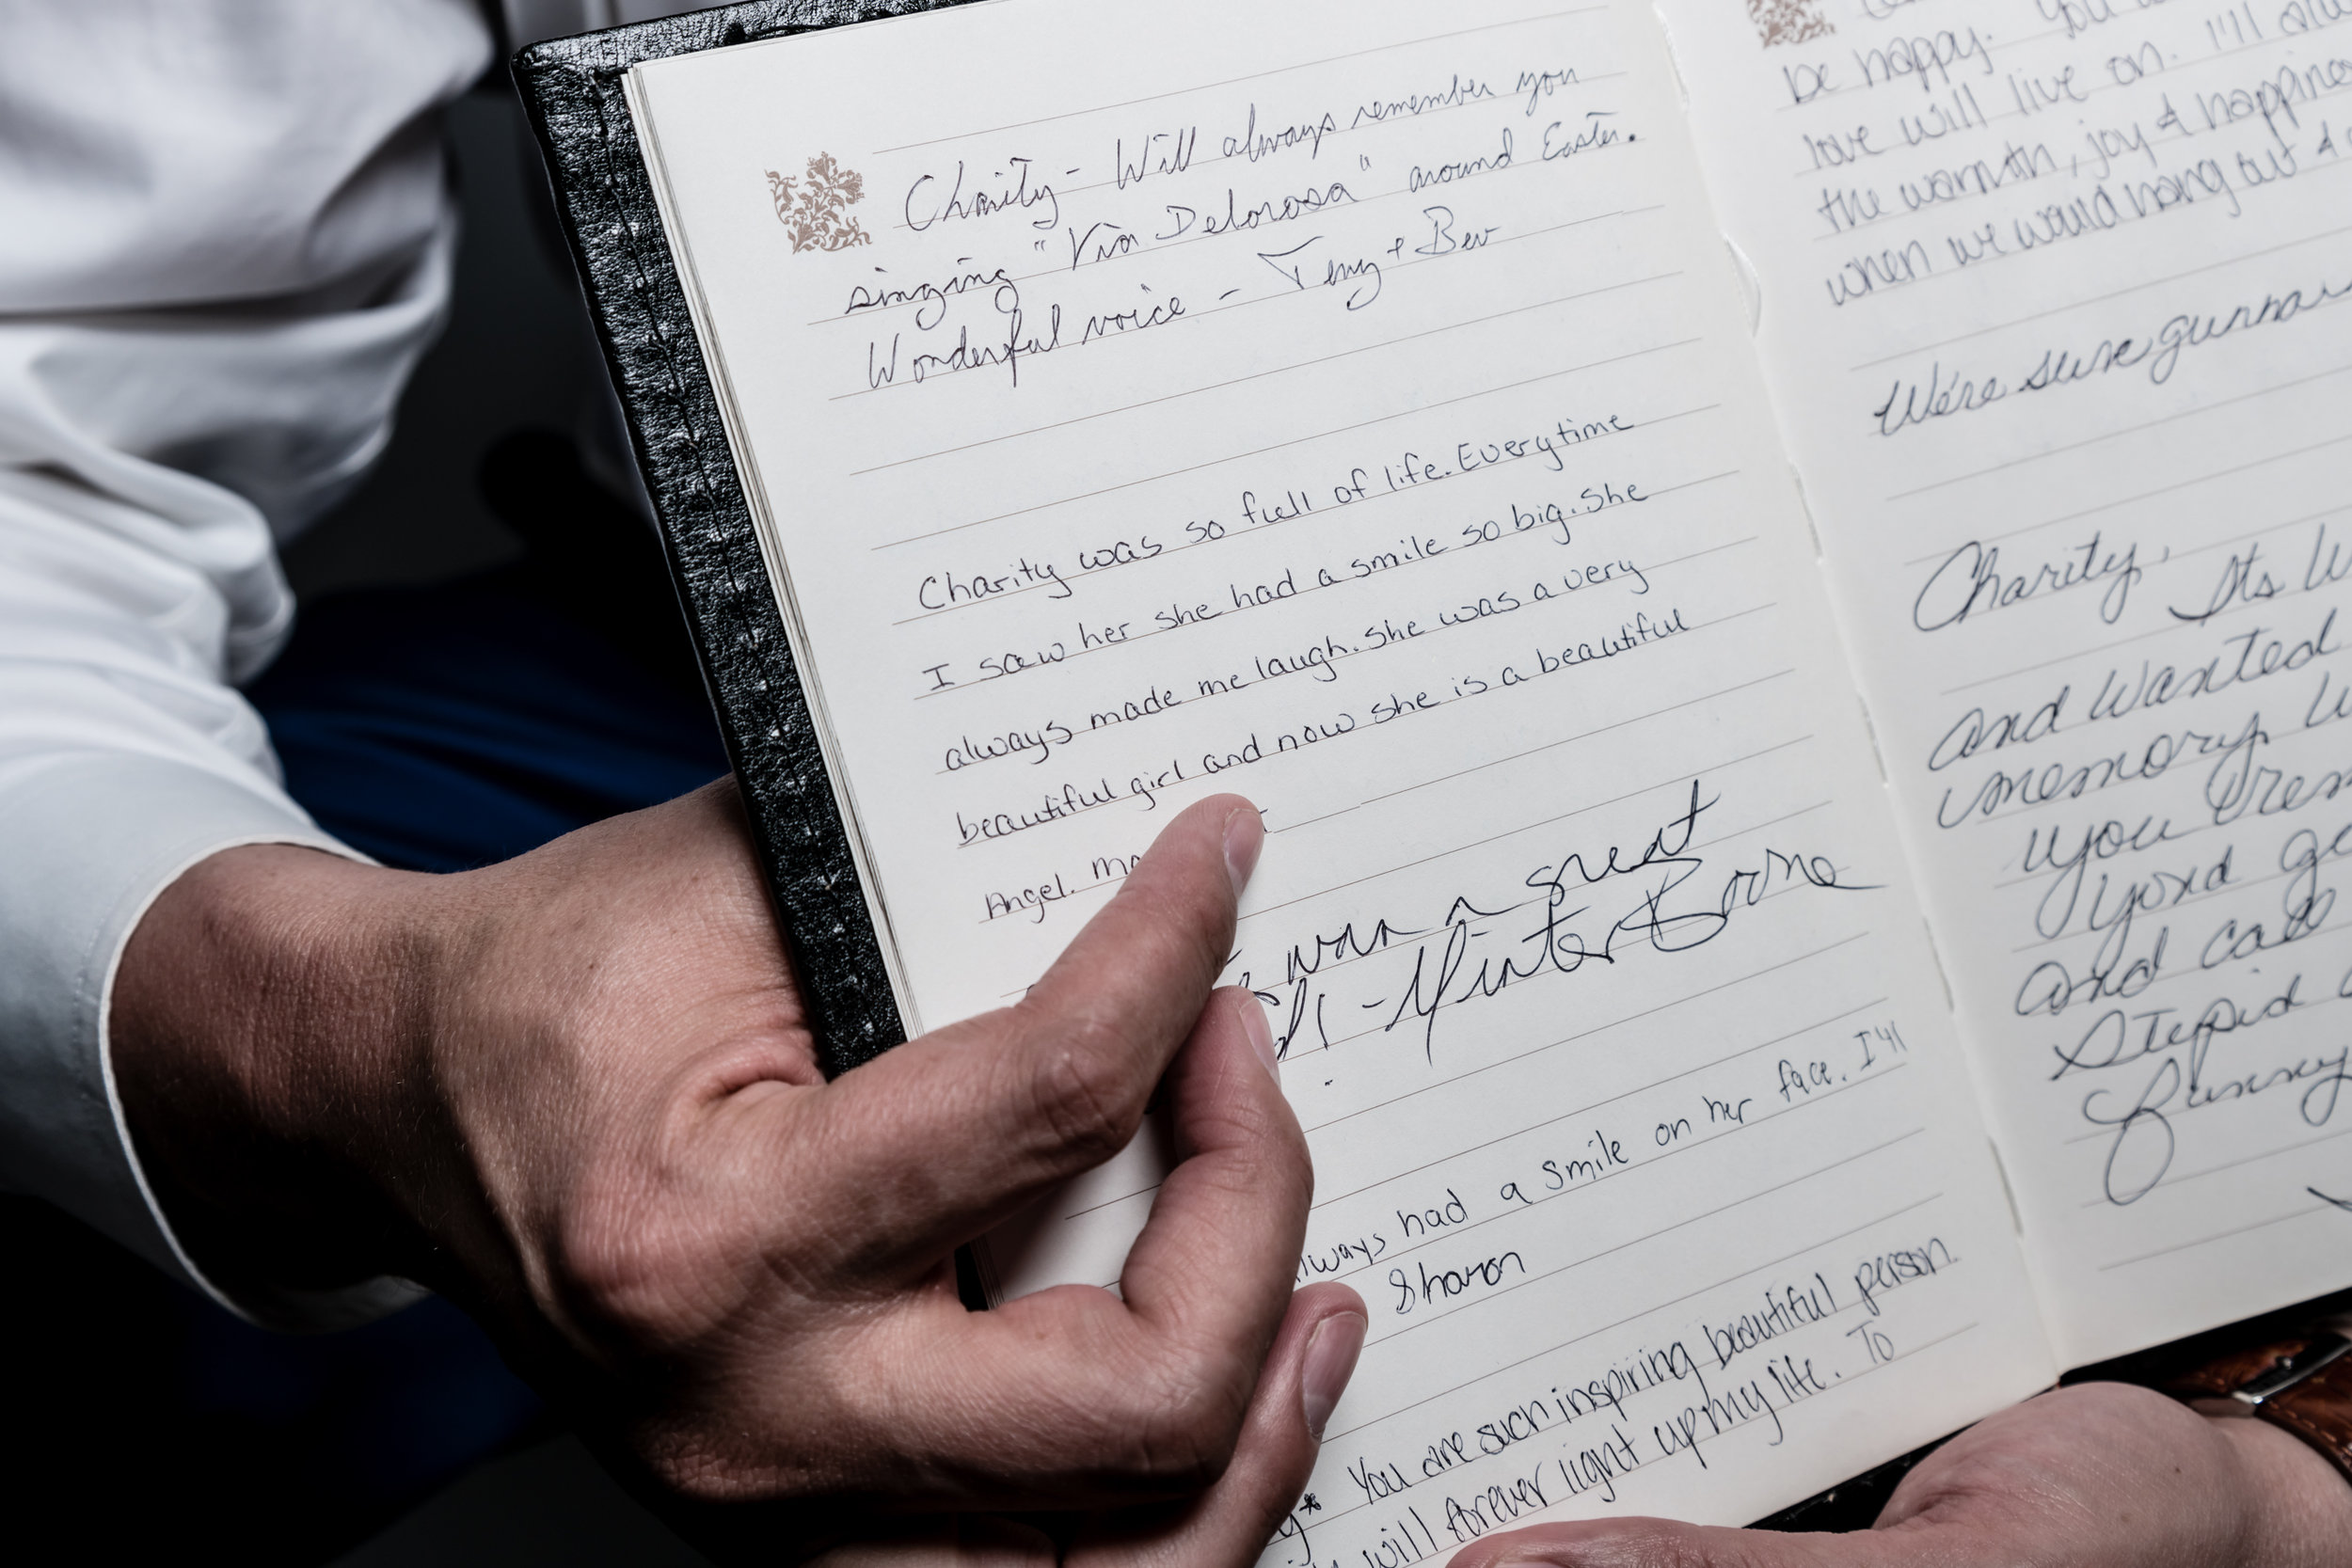 Charity - Will always remember you
singing "Via Delorosa" around Easter.
Wonderful voice - Terry + Bev
Charity was so full of life. Everytime
I saw her she had a smile so big. She
always made me laugh. She was a very
beautiful girl and now she is a beautiful
Angel.
was a great
Boone
always had a smile on her face. I'll
Sharon
You are such inspiring beautiful person.
will forever light up my life. To
be happy. You
love will live on. I'll
the warmth, joy & happiness
when we would hang out &
We're sure gunna
Charity,
Its
and wanted
memory.
you
and call
stupid
funny